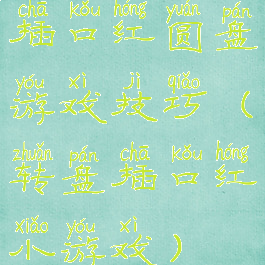 chā kǒu hóng yuán pán
插口红圆盘
yóu xì jì qiǎo
游戏技巧（
zhuǎn pán chā kǒu hóng
转盘插口红
xiǎo yóu xì
小游戏）